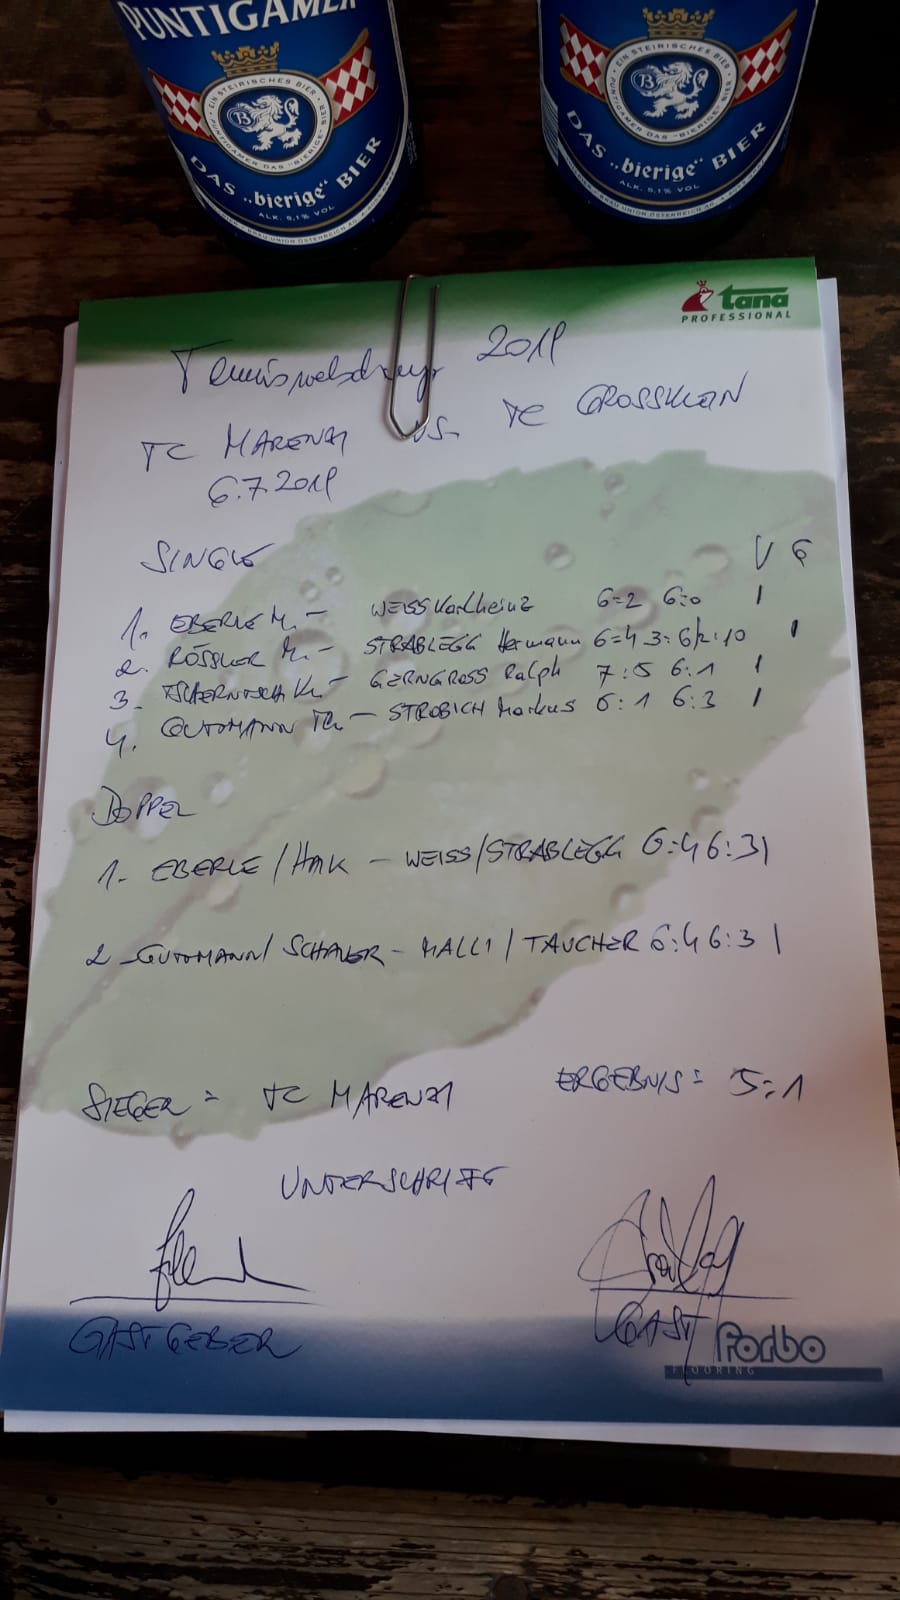 PUNTIGAMER
EIN STEIRISCHES BIER
B
PUNTIGAMER DAS „BIERIGE“ BIER
DAS „bierige“ BIER
ALK. 5,1% VOL
BRAU UNION ÖSTERREICH AG
EIN STEIRISCHES BIER
B
PUNTIGAMER DAS „BIERIGE“ BIER
DAS „bierige“ BIER
ALK. 5,1% VOL
BRAU UNION ÖSTERREICH AG
tana
PROFESSIONAL
2019
TC MARENZI VS. TC GROSSKLEIN
6.7.2019
SINGLE V G
1. EBERLE M. – WEISS Karlheinz 6:2 6:0 I
2. RÖSSLER M. – STRABLEGG Hermann 6:4 3:6/2:10 I
3. – GERNGROSS Ralph 7:5 6:1 I
4. GUTTMANN Th. – STROBICH Markus 6:1 6:3 I
DOPPEL
1. EBERLE / HAK – WEISS/STRABLEGG 6:4 6:3 I
2. GUTTMANN/ SCHAUER – MALLI / TAUCHER 6:4 6:3 I
SIEGER = TC MARENZI ERGEBNIS: 5:1
UNTERSCHRIFT
GASTGEBER GAST
forbo
FLOORING